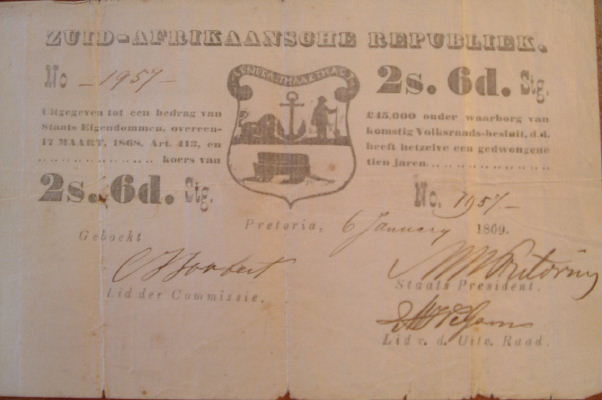 ZUID-AFRIKAANSCHE REPUBLIEK.
No 1957
EENDRAGT MAAKT MAGT
2s. 6d. Stg.
Uitgegeven tot een bedrag van £45,000 onder waarborg van
Staats Eigendommen, overeenkomstig Volksraads-besluit, d.d.
17 MAART, 1868, Art. 413, en heeft hetzelve een gedwongene
koers van tien jaren
2s. 6d. Stg.
No. 1957
Pretoria, 6 January 1869.
Geboekt
Joubert
MW Pretorius
Lid der Commissie.
Staats President.
Lid v. d. Uitv. Raad.